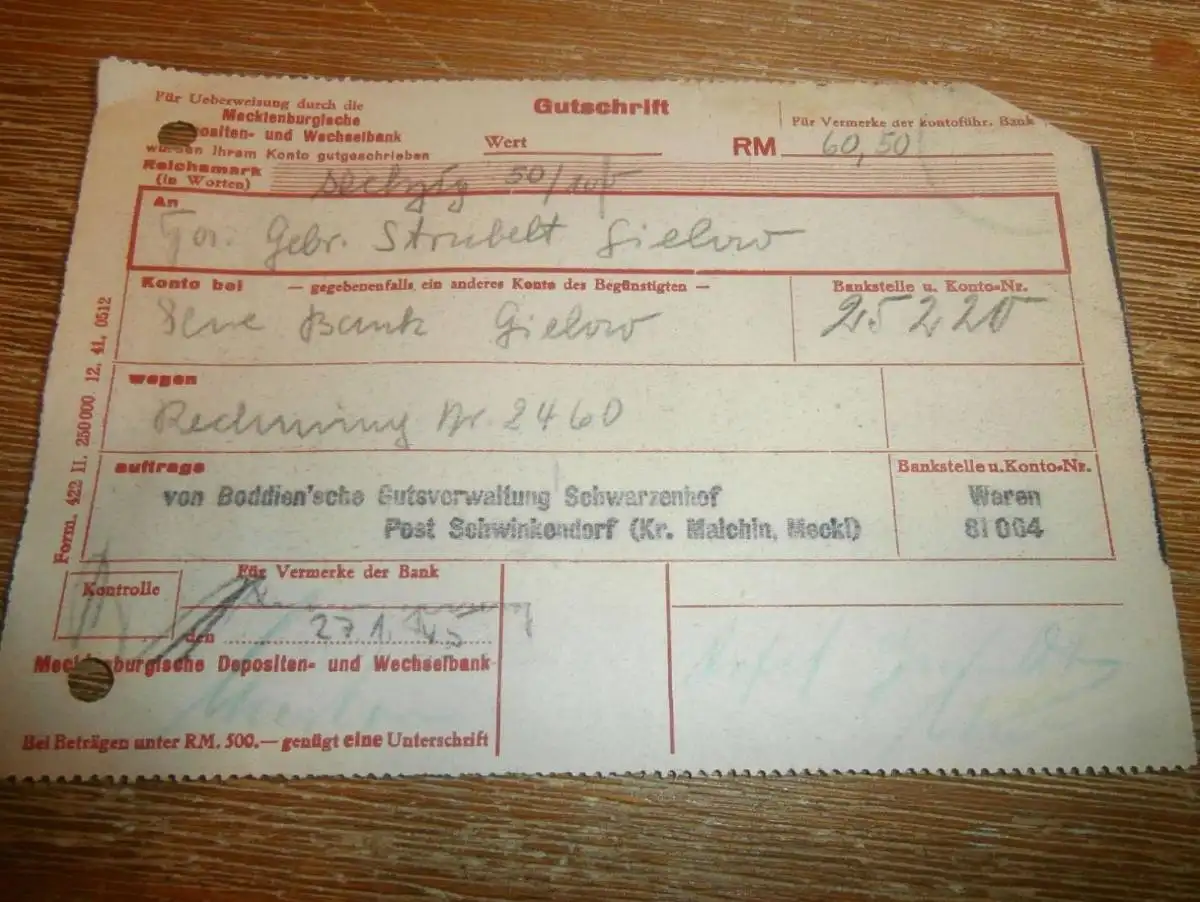 Für Ueberweisung durch die
Mecklenburgische
positen- und Wechselbank
wurden Ihrem Konto gutgeschrieben
Gutschrift
Wert
RM 60,50
Für Vermerke der kontoführ. Bank
Reichsmark
(in Worten)
sechzig 50/100
An
Fa. Gebr. Strubelt Gielow
Konto bei — gegebenenfalls ein anderes Konto des Begünstigten —
Bankstelle u. Konto-Nr.
Bank Gielow
25220
wegen
Rechnung Nr. 2460
auftrags
Bankstelle u. Konto-Nr.
von Boddien'sche Gutsverwaltung Schwarzenhof
Post Schwinkendorf (Kr. Malchin, Meckl)
Waren
81004
Form. 422 II. 250000 12. 41. 0512
Kontrolle
Für Vermerke der Bank
den 27.1. 45
Mecklenburgische Depositen- und Wechselbank
Bei Beträgen unter RM. 500.— genügt eine Unterschrift